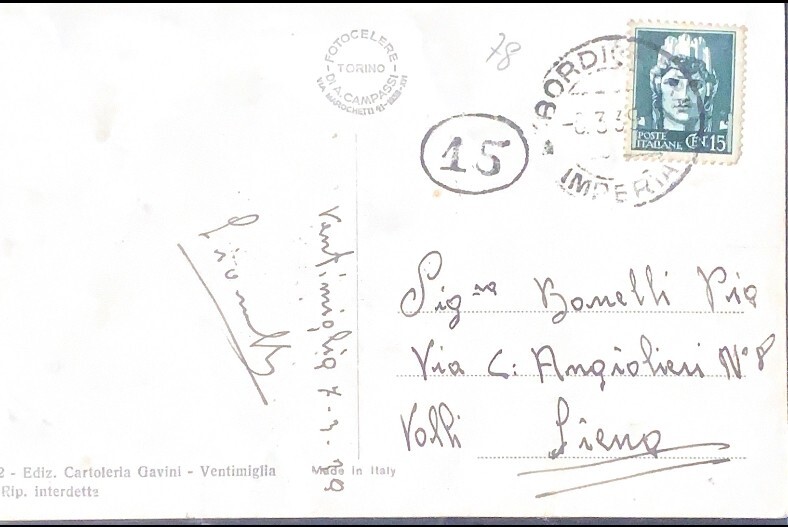 FOTOCELERE
TORINO
DI A. CAMPASSI
78
15
BORDI
3.39
IMPERIA
POSTE
ITALIANE CEN. 15
Ventimiglia 7-3-39
Sigⁿᵃ Bonelli Pia
Via C. Angiolieri N° 8
Valli Siena
2 - Ediz. Cartoleria Gavini - Ventimiglia
Rip. interdette
Made in Italy